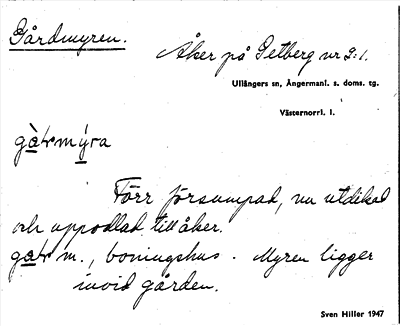 Gårdmyren.
Åker på Getberg nr 2:1.
Ullångers sn, Ångermanl. s. doms. tg.
Västernorrl. l.
gàṭmýra
Förr försumpad, nu utdikad
och uppodlad till åker.
gaṭ m., boningshus. Myren ligger
invid gården.
Sven Hiller 1947